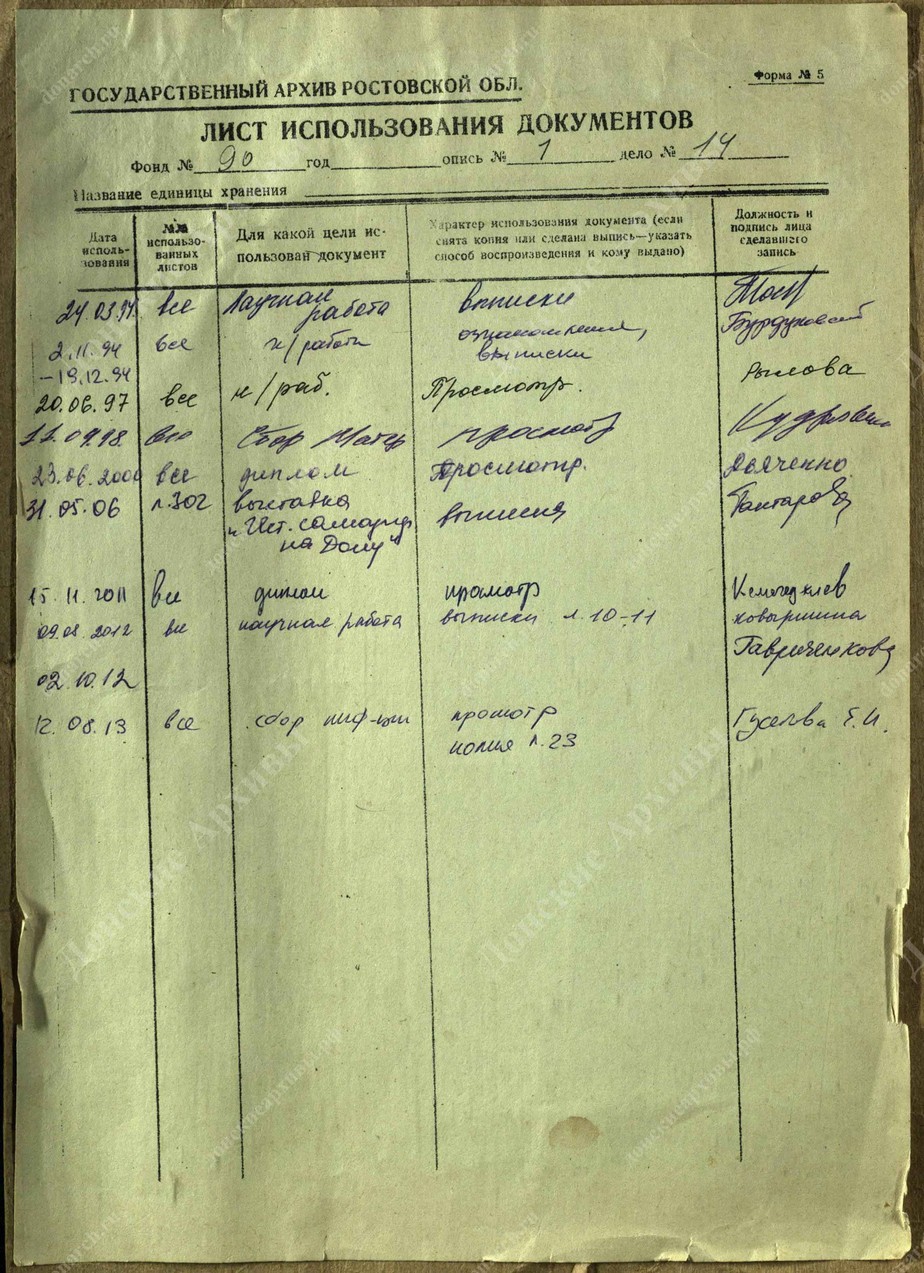 Форма № 5
ГОСУДАРСТВЕННЫЙ АРХИВ РОСТОВСКОЙ ОБЛ.
ЛИСТ ИСПОЛЬЗОВАНИЯ ДОКУМЕНТОВ
Фонд № 90 год опись № 1 дело № 14
Название единицы хранения
Дата исполь-зования
№№ использо-ванных листов
Для какой цели ис-пользован документ
Характер использования документа (если снята копия или сделана выпись—указать способ воспроизведения и кому выдано)
Должность и подпись лица сделавшего запись
24.03.94 все Научная работа выписки
2.11.94 все н/работа ознакомление, выписки
-19.12.94
20.06.97 все н/раб. Просмотр. Рылова
11.09.98 все Сбор матер просмотр
23.06.2000 все диплом Просмотр. Дьяченко
31.05.06 л.302 выставка выписка
"Ист. самоупр
на Дону"
15.11.2011 все диплом просмотр
09.08.2012 все научная работа выписки л.10-11
Гавриченкова
02.10.12
12.08.13 все сбор инф-ции просмотр
копия л.23
Донские Архивы
донскиеархивы.рф
donarch.ru